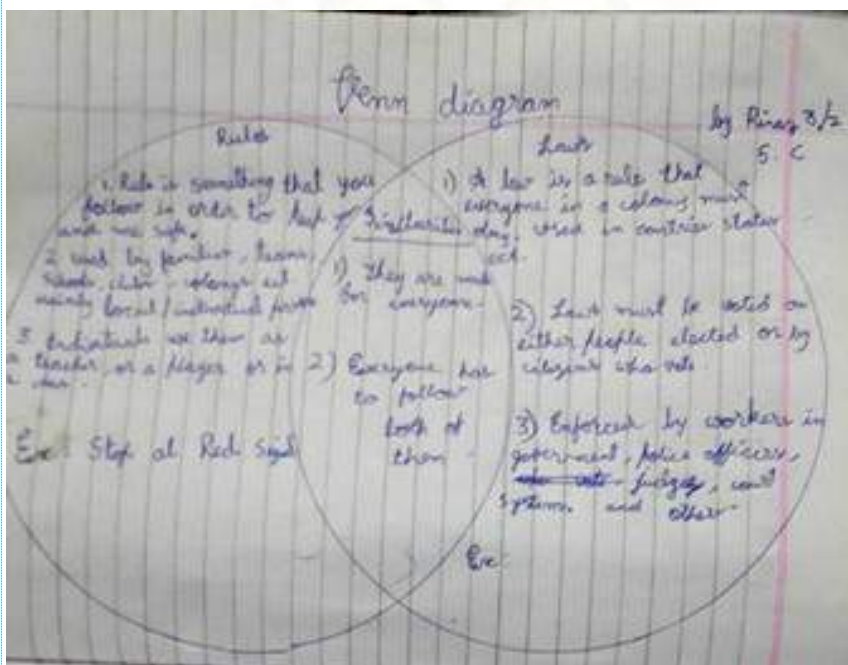 Venn diagram
by
5. C
Rules
1. Rule is something that you
follow in order to
and safe.
2. used by families, teams,
mainly local/individual
3. Individuals use them as
a teacher, or a player or in
a
Ex: Stop at Red Signal
Similarities
1) They are
for everyone.
2) Everyone has
to follow
both of
them
Laws
1) A law is a rule that
everyone in a must
obey, used in countries states
2) Laws must be voted on
either people elected or by
citizens who vote.
3) Enforced by workers in
government, police officers,
judges, court
system, and other
Ex: